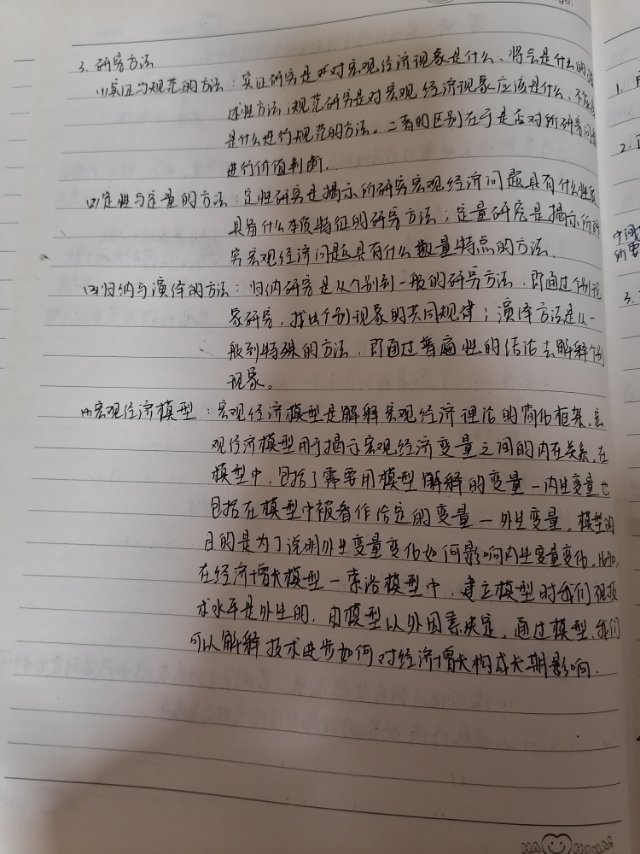 3. 研究方法
(1)实证与规范的方法：实证研究是对宏观经济现象是什么、将会是什么的
述性方法；规范研究是对宏观经济现象应该是什么、不应
是什么进行规范的方法。二者的区别在于是否对所研究问
进行价值判断.
(2)定性与定量的方法：定性研究是揭示所研究宏观经济问题具有什么性质
具有什么本质特征的研究方法；定量研究是揭示所研
究宏观经济问题具有什么数量特点的方法.
(3)归纳与演绎的方法：归纳研究是从个别到一般的研究方法，即通过个别现
象研究，找出个别现象的共同规律；演绎方法是从一
般到特殊的方法，即通过普遍性的结论去解释个别
现象。
(4)宏观经济模型：宏观经济模型是解释宏观经济理论的简化框架.宏
观经济模型用于揭示宏观经济变量之间的内在关系.在
模型中，包括了需要用模型解释的变量—内生变量,也
包括在模型中被看作给定的变量—外生变量，模型的
目的是为了说明外生变量变化如何影响内生变量变化.
在经济增长模型—索洛模型中，建立模型时我们视技
术水平是外生的，由模型以外因素决定，通过模型,我们
可以解释技术进步如何对经济增长构成长期影响.
1.
2.
3.
HA HAHA!